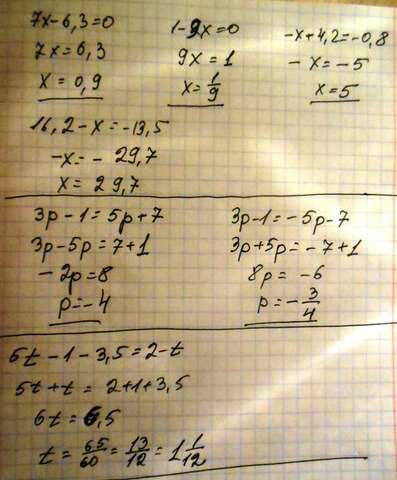 7x-6,3=0
7x=6,3
x=0,9
1-9x=0
9x=1
x=1/9
-x+4,2=-0,8
-x=-5
x=5
16,2-x=-13,5
-x=-29,7
x=29,7
3p-1=5p+7
3p-5p=7+1
-2p=8
p=-4
3p-1=-5p-7
3p+5p=-7+1
8p=-6
p=-3/4
5t-1-3,5=2-t
5t+t=2+1+3,5
6t=6,5
t=65/60=13/12=1 1/12